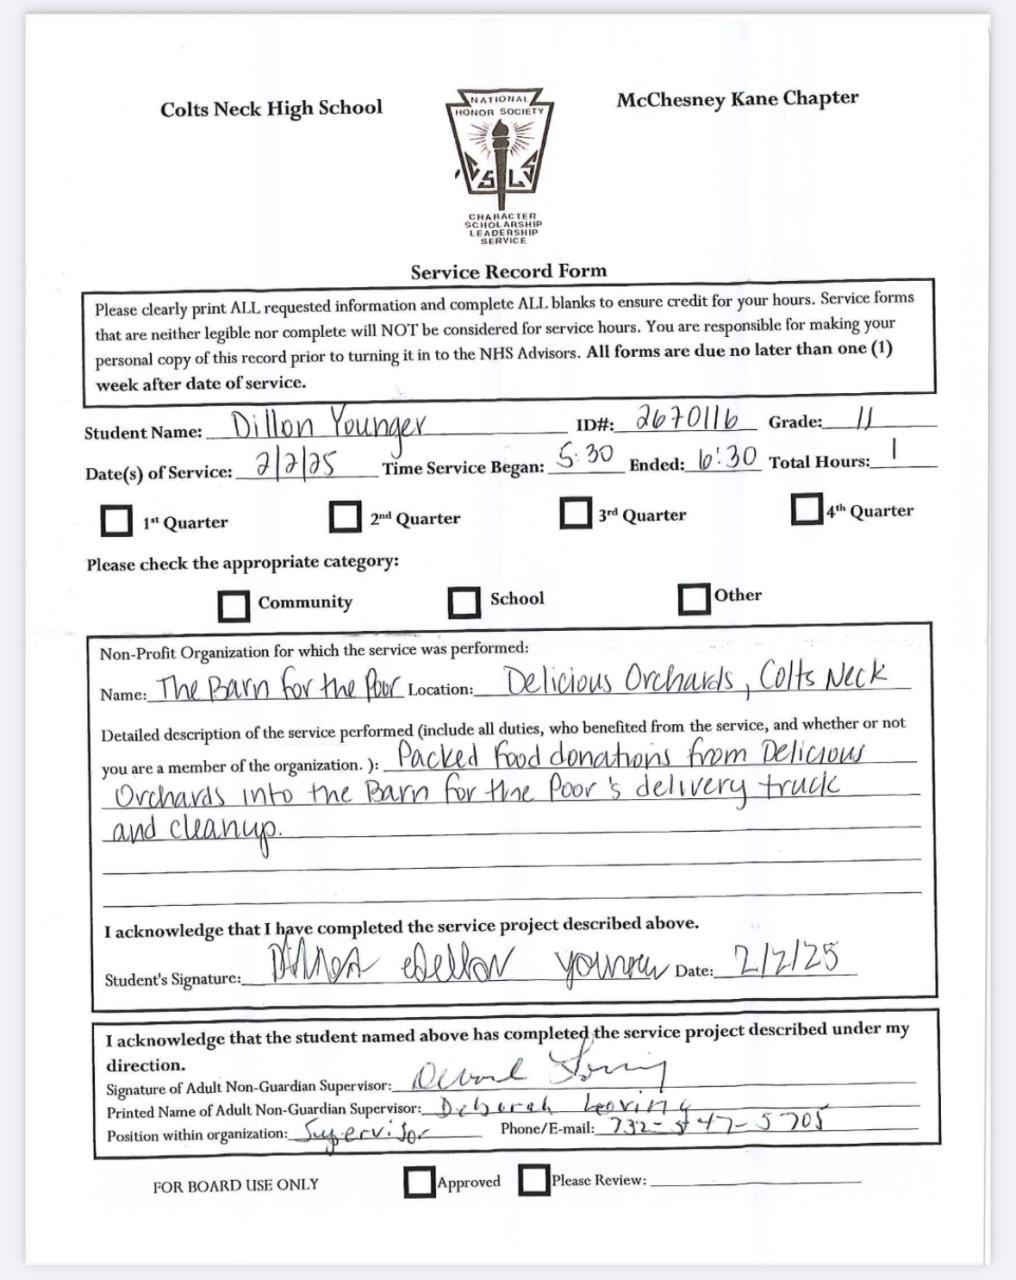 Colts Neck High School
McChesney Kane Chapter
NATIONAL
HONOR SOCIETY
CSLS
CHARACTER
SCHOLARSHIP
LEADERSHIP
SERVICE
Service Record Form
Please clearly print ALL requested information and complete ALL blanks to ensure credit for your hours. Service forms
that are neither legible nor complete will NOT be considered for service hours. You are responsible for making your
personal copy of this record prior to turning it in to the NHS Advisors. All forms are due no later than one (1)
week after date of service.
Student Name: Dillon Younger ID#: 2670116 Grade: 11
Date(s) of Service: 2/2/25 Time Service Began: 5:30 Ended: 6:30 Total Hours: 1
1st Quarter 2nd Quarter 3rd Quarter 4th Quarter
Please check the appropriate category:
Community School Other
Non-Profit Organization for which the service was performed:
Name: The Barn for the Poor Location: Delicious Orchards, Colts Neck
Detailed description of the service performed (include all duties, who benefited from the service, and whether or not
you are a member of the organization. ): Packed food donations from Delicious
Orchards into the Barn for the Poor's delivery truck
and cleanup.
I acknowledge that I have completed the service project described above.
Student's Signature: Date: 2/2/25
I acknowledge that the student named above has completed the service project described under my
direction.
Signature of Adult Non-Guardian Supervisor:
Printed Name of Adult Non-Guardian Supervisor: Deborah
Position within organization: Supervisor Phone/E-mail:
FOR BOARD USE ONLY Approved Please Review: